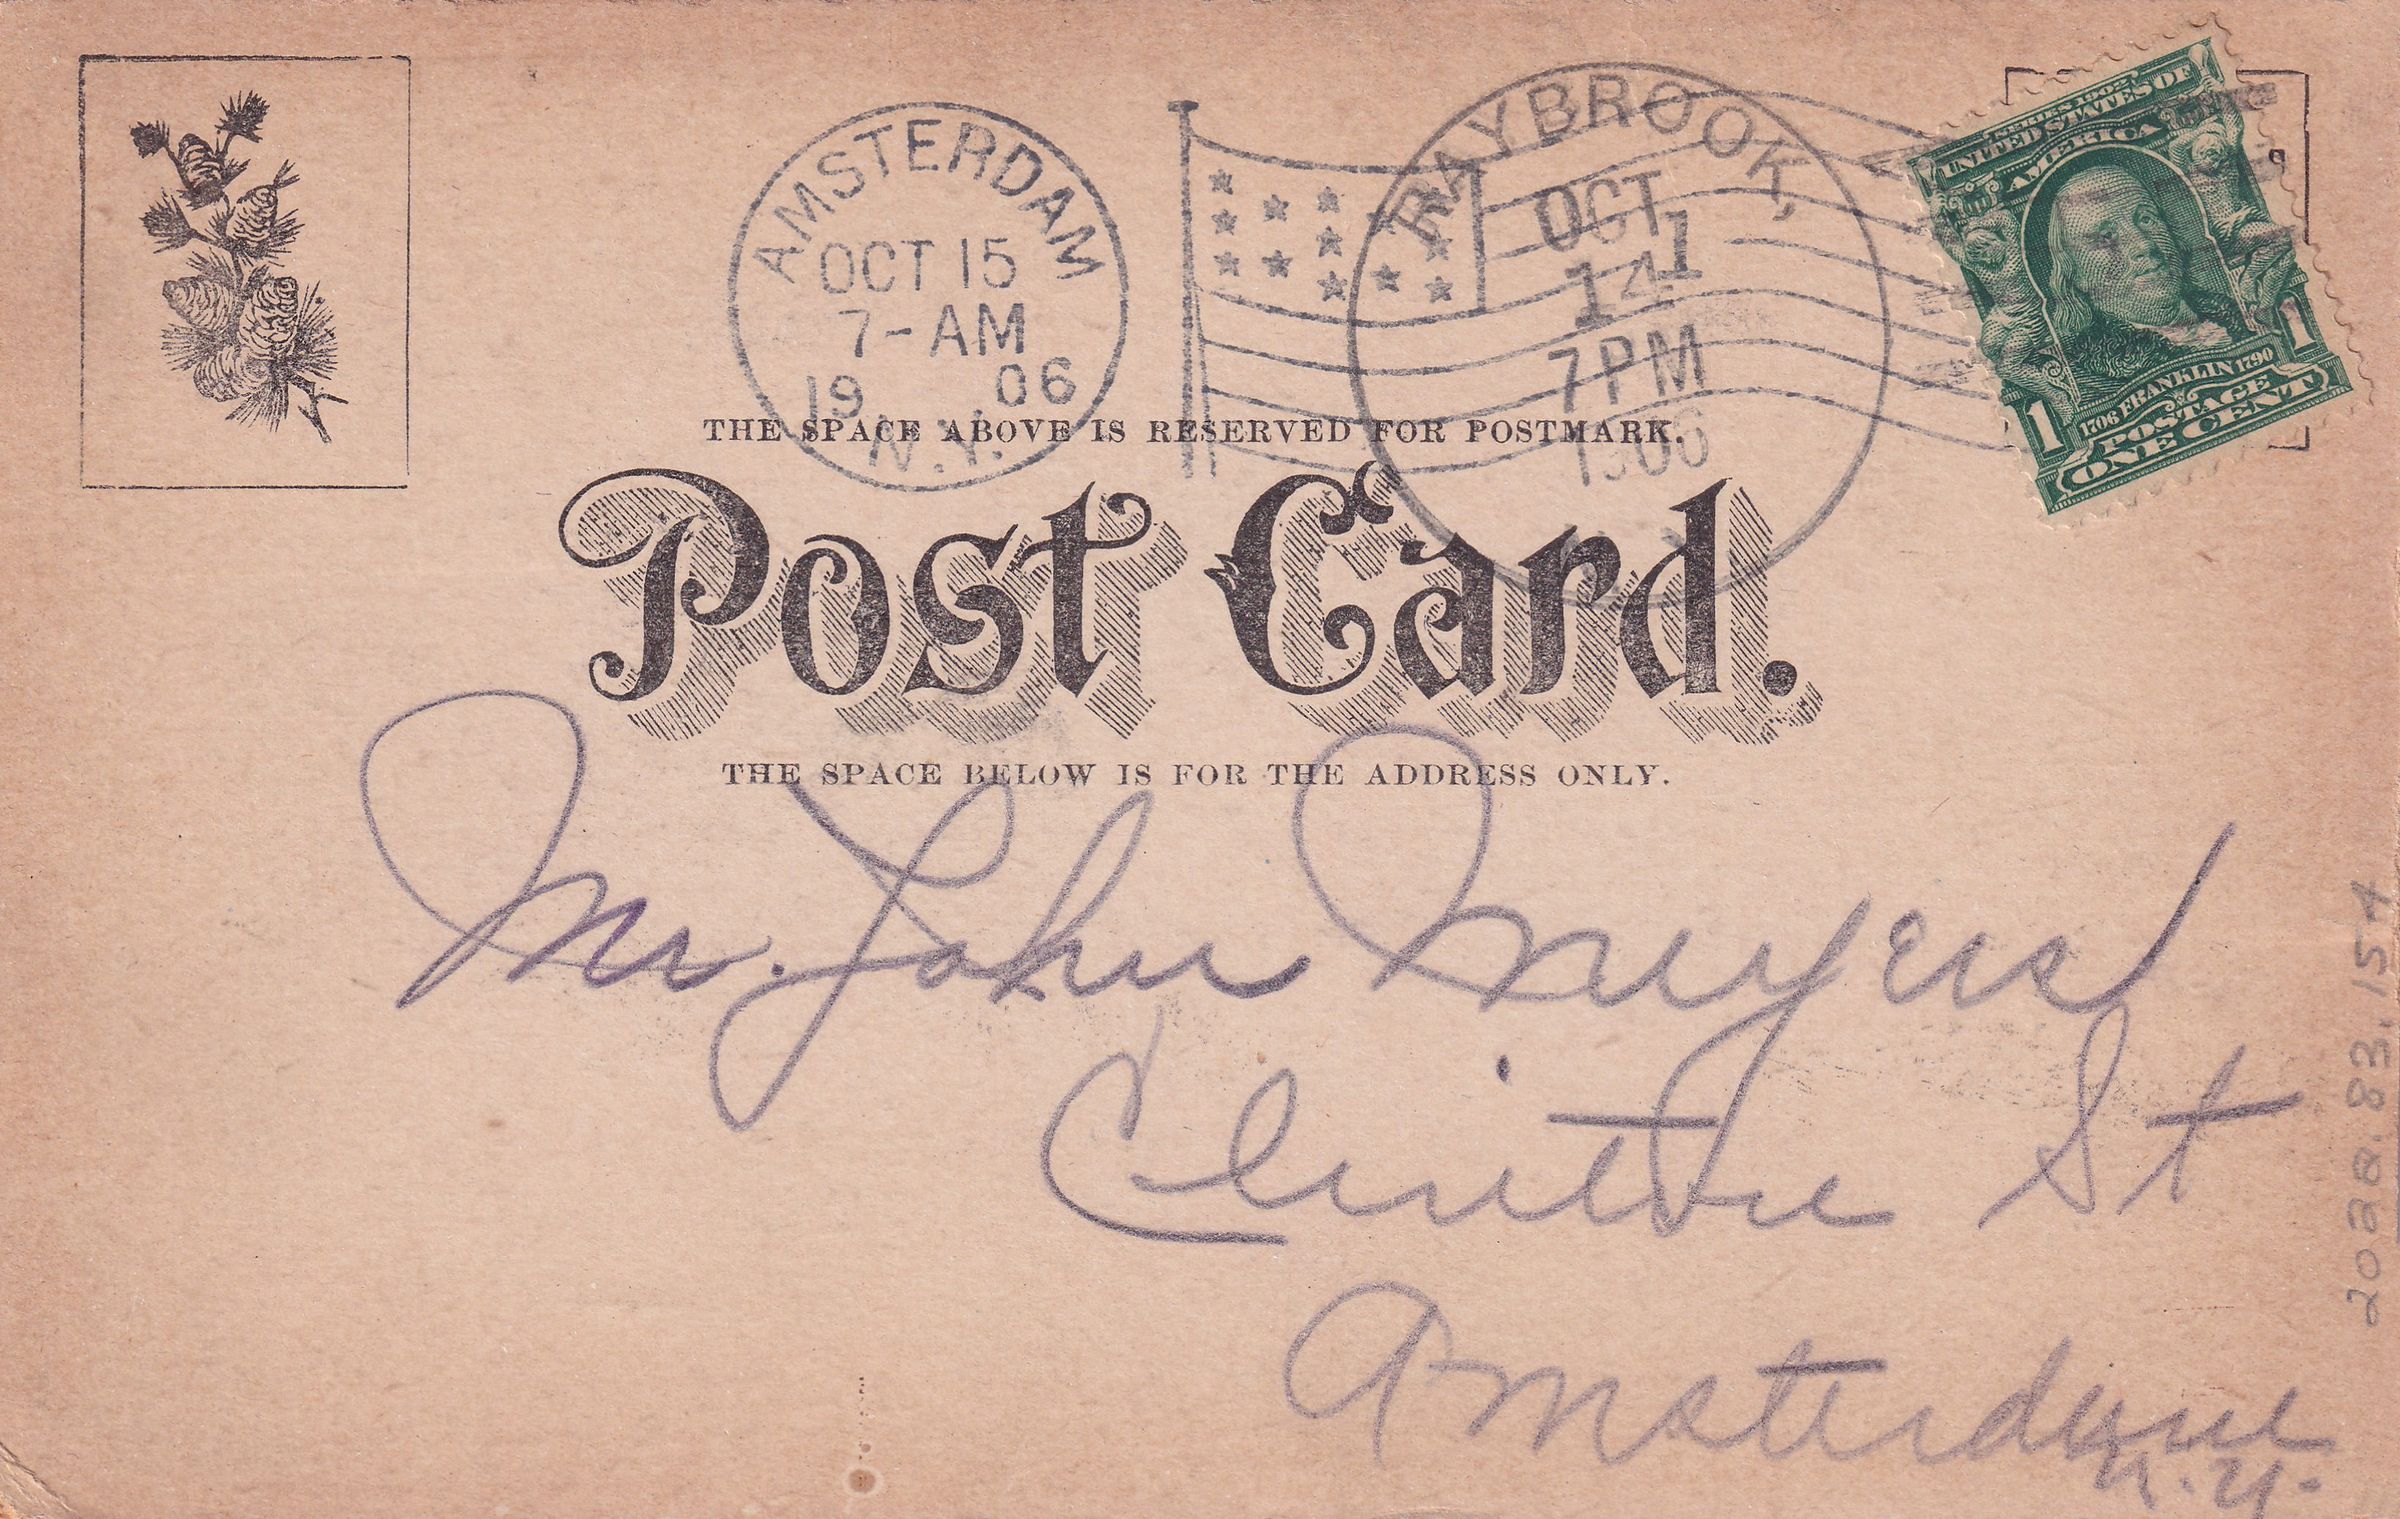 AMSTERDAM
OCT 15
7-AM
19 06
N.Y.
RAYBROOK,
OCT
14
7PM
1906
SERIES 1902
UNITED STATES OF
AMERICA
1706 FRANKLIN 1790
1 1
POSTAGE
ONE CENT
THE SPACE ABOVE IS RESERVED FOR POSTMARK.
Post Card.
THE SPACE BELOW IS FOR THE ADDRESS ONLY.
Mr. John Myers
Clinton St
Amsterdam
N.Y.
2022.83.154